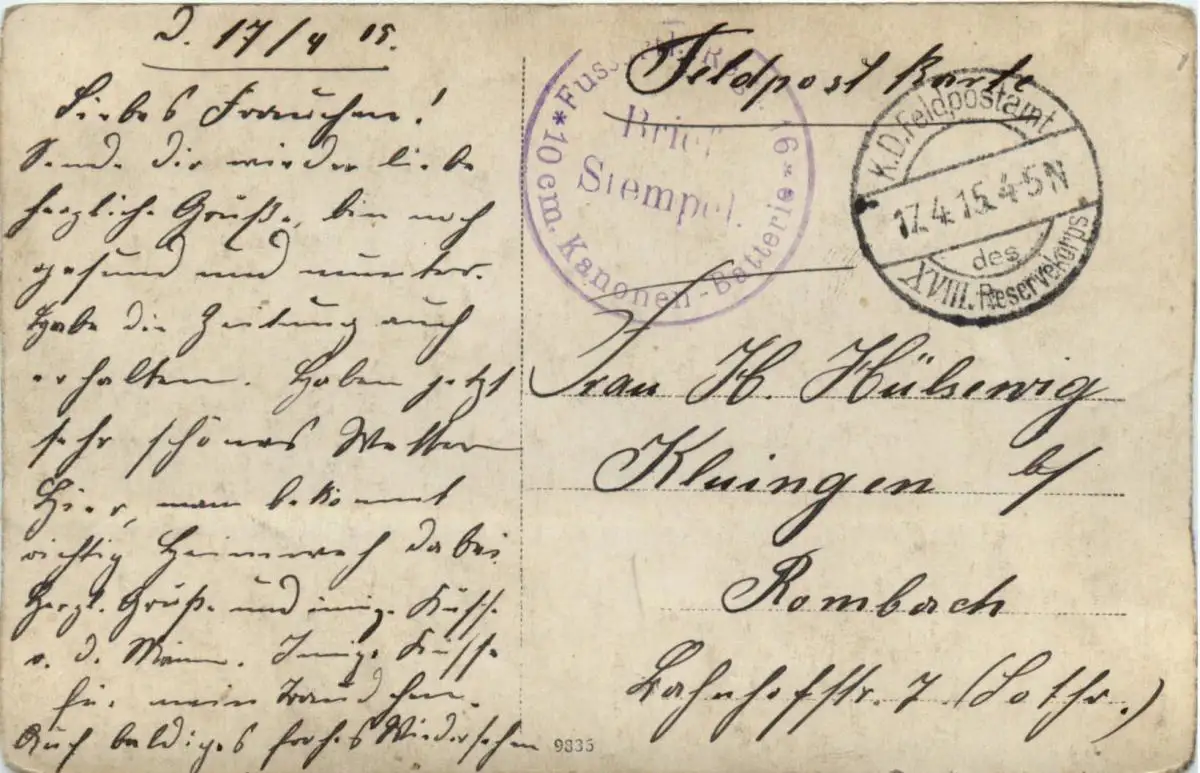 D. 17/4 15.
Liebes Frauchen!
Sende dir wieder liebe
herzliche Grüße, bin noch
gesund und munter.
Habe die Zeitung auch
erhalten. Haben jetzt
sehr schönes Wetter
Hier, man bekommt
richtig Heimweh dabei.
Herzl. Grüße und innige Küsse
v. d. Mann. Innige Küsse
für mein Traudchen.
Auf baldiges frohes Wiedersehen
9835
Feldpost karte
*Fuss
Brief
Stempel.
*10 cm. Kanonen-Batterie 16*
K.D.Feldpostamt
17.4.15.4-5N
des
XVIII. Reservekorps
Frau H. Hülsewig
Kluingen b/
Rombach
Bahnhofstr. 7 (Lothr.)